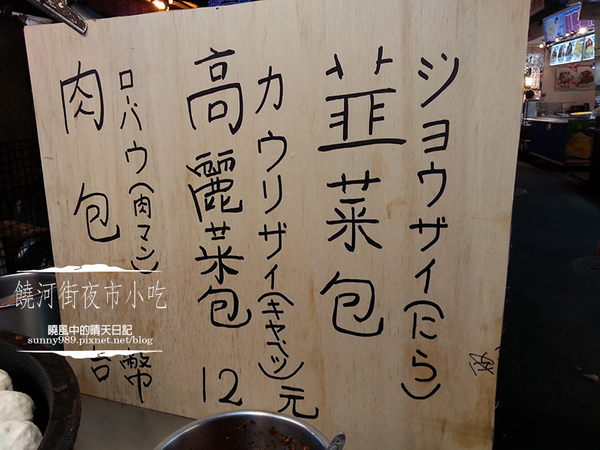 ショウザイ(にら)
韮菜包
カウリザイ(キャベツ)元
高麗菜包 12
ロバウ(肉マン)
肉包
幣
饒河街夜市小吃
曉風中的晴天日記
sunny989.pixnet.net/blog